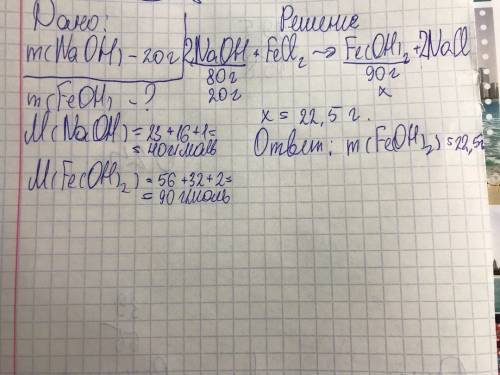 Дано:
m(NaOH) - 20г
m(FeOH)₂ - ?
M(NaOH) = 23+16+1=
= 40г/моль
M(Fe(OH)₂) = 56+32+2=
= 90г/моль
Решение
2NaOH + FeCl₂ → Fe(OH)₂ + 2NaCl
80г 90г
20г x
x = 22,5 г.
Ответ: m(FeOH)₂) = 22,5г